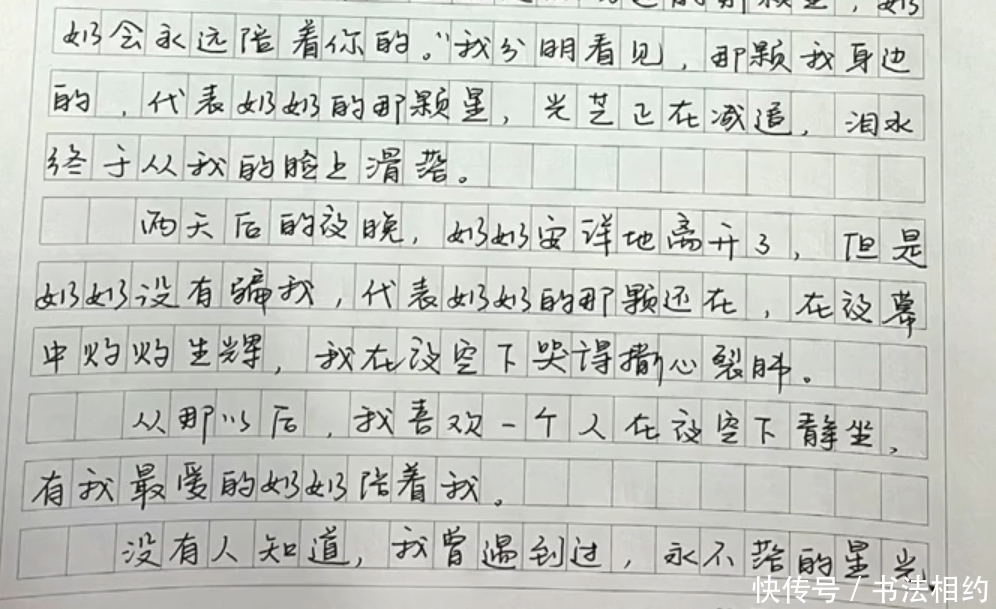 那颗星，奶
奶会永远陪着你的。"我分明看见，那颗我身边
的，代表奶奶的那颗星，光芒正在减退，泪水
终于从我的脸上滑落。
两天后的夜晚，奶奶安详地离开了，但是
奶奶没有骗我，代表奶奶的那颗还在，在夜幕
中灼灼生辉，我在夜空下哭得撕心裂肺。
从那以后，我喜欢一个人在夜空下静坐，
有我最爱的奶奶陪着我。
没有人知道，我曾遇到过，永不落的星光
快传号/书法相约